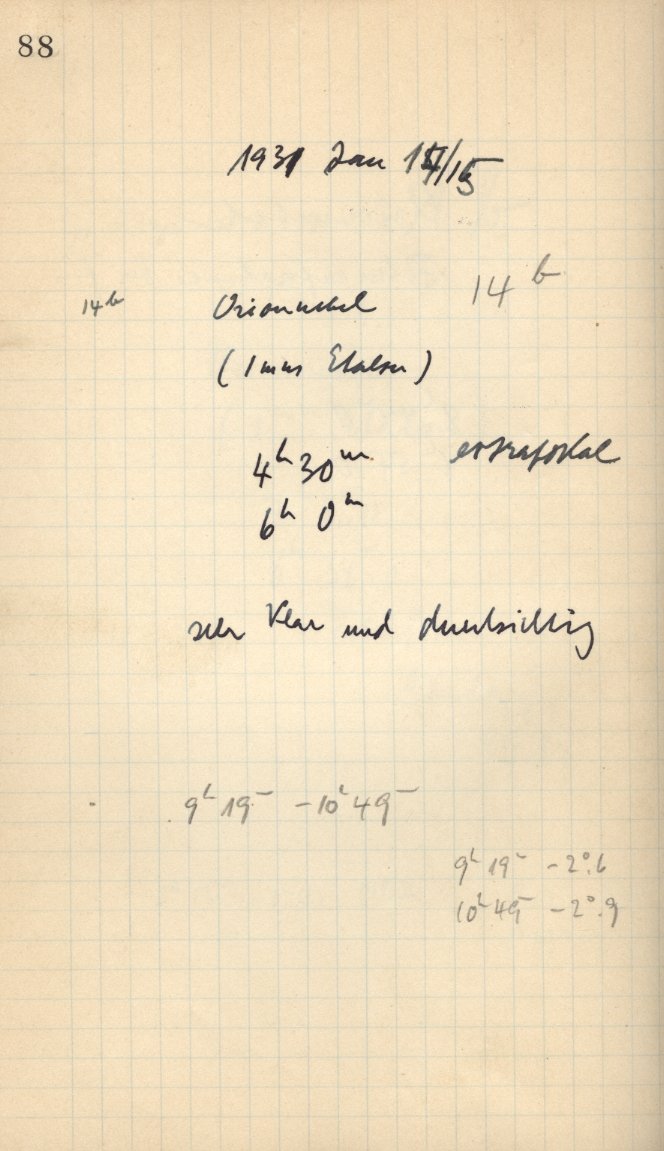 88
1931 Jan 14/15
14h Orionnebel 14 h
(1 mm Blende)
4h 30m extrafokal
6h 0m
sehr klar und durchsichtig
9h 19m - 10h 49m
9h 19m - 2°.6
10h 49m - 2°.9